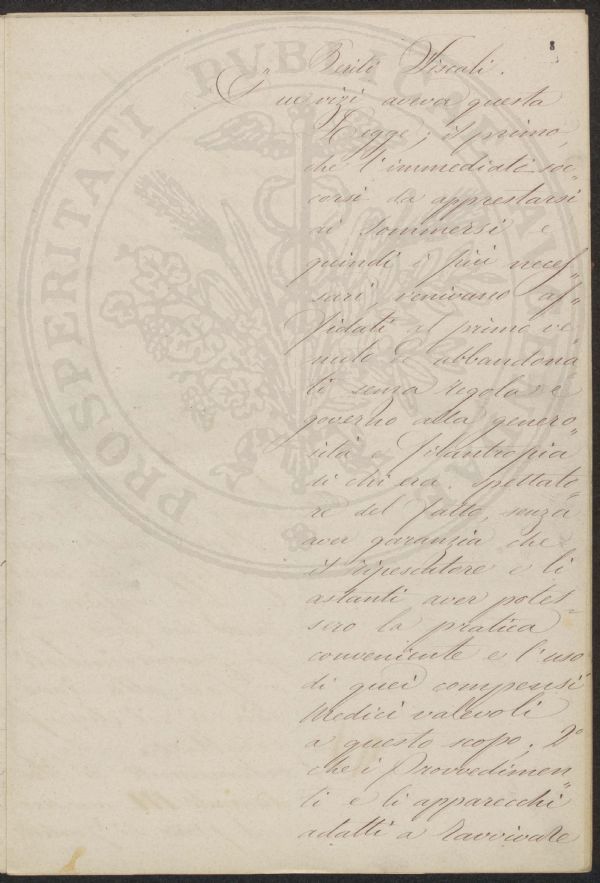 8
Periti Fiscali.
Due vizi aveva questa
Legge; il primo,
che l'immediati soc=
corsi da apprestarsi
ai sommersi e
quindi i più neces=
sari venivano af=
fidati al primo ve=
nuto e abbandona=
ti senza regola e
governo alla genero=
sità e filantropia
di chi era spettato=
re del fatto, senza
aver garanzia che
il ripescatore e li
astanti aver potes=
sero la pratica
conveniente e l'uso
di quei compensi
medici valevoli
a questo scopo; 2º
che i Provvedimen=
ti e li apparecchi
adatti a ravvivare
PROSPERITATI PVBLICAE AVGENDAE